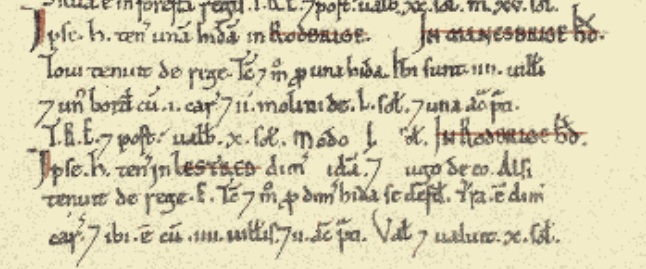 Ipse .h. ten̄ unā hidā in RODBRIGE. IN MANESBRIGE HD̄.
Toui tenuit de rege. Tc̄ ⁊ m̊ ꝓ una hida. Ibi sunt .IIII. uilli
⁊ un̄ bord̄ cū .I. car̄ ⁊ II. molini de .L. sol̄. ⁊ una ac̄ p̄ti.
T.R.E. ⁊ post: ualb̄ .X. sol̄. Modo L sol̄. IN RODBRIGE HD̄.
Ipse .h. ten̄ in LESTRED dim̄ idā. ⁊ ugo de eo. Alsi
tenuit de rege .E. Tc̄ ⁊ m̊ ꝓ dim̄ hida se defd̄. Tr̄a .ē dim̄
car̄. ⁊ ibi .ē cū .IIII. uillis. ⁊ II. ac̄ p̄ti. Val̄ ⁊ ualuit .X. sol̄.